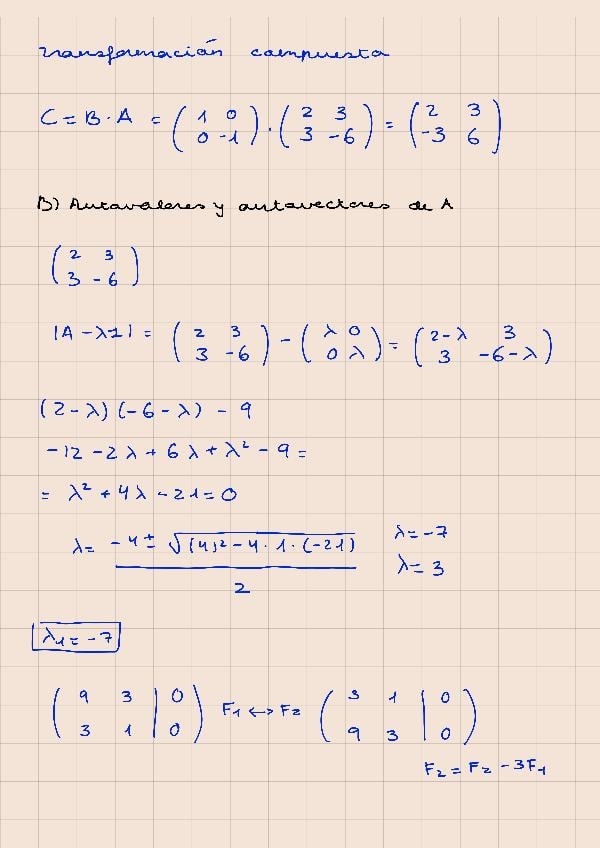 transformación compuesta
C = B · A = (1 0 / 0 -1) · (2 3 / 3 -6) = (2 3 / -3 6)
B) Autovalores y autovectores de A
(2 3 / 3 -6)
|A - λI| = (2 3 / 3 -6) - (λ 0 / 0 λ) = (2-λ 3 / 3 -6-λ)
(2-λ)(-6-λ) - 9
-12 - 2λ + 6λ + λ² - 9 =
= λ² + 4λ - 21 = 0
λ = (-4 ± √((4)² - 4 · 1 · (-21))) / 2 λ = -7
λ = 3
λ₁ = -7
(9 3 | 0 / 3 1 | 0) F₁ ↔ F₂ (3 1 | 0 / 9 3 | 0)
F₂ = F₂ - 3F₁